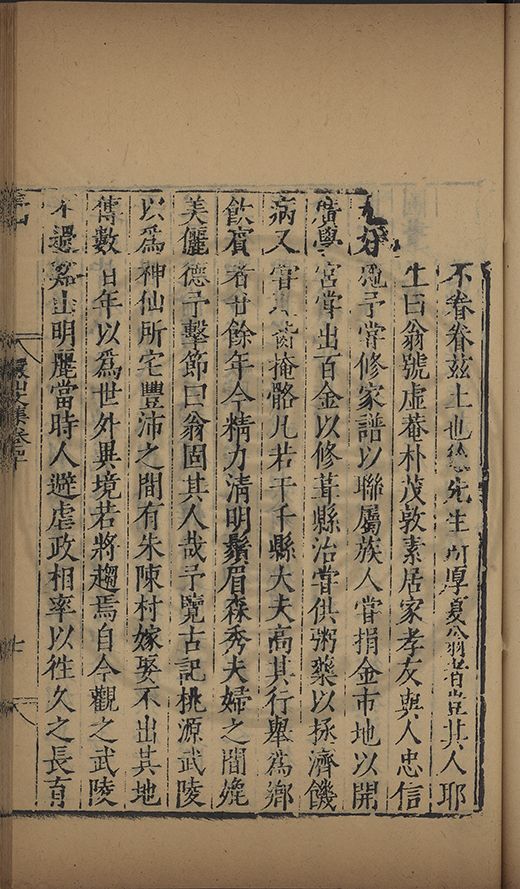 不眷眷茲土也先生所厚夏翁者豈其人耶
生曰翁號虛菴朴茂敦素居家孝友與人忠信
予嘗修家譜以聯屬族人嘗捐金市地以開
廣學宮嘗出百金以修葺縣治嘗供粥藥以拯濟饑
病又嘗掩骼凡若干千縣大夫高其行舉為鄉
飲賓者廿餘年今精力清明鬚眉森秀夫婦之間媲
美儷德予擊節曰翁固其人哉予覽古記桃源武陵
以為神仙所宅豐沛之間有朱陳村嫁娶不出其地
傳數百年以為世外異境若將趨焉自今觀之武陵
不過谿山明麗當時人避虐政相率以往久之長育